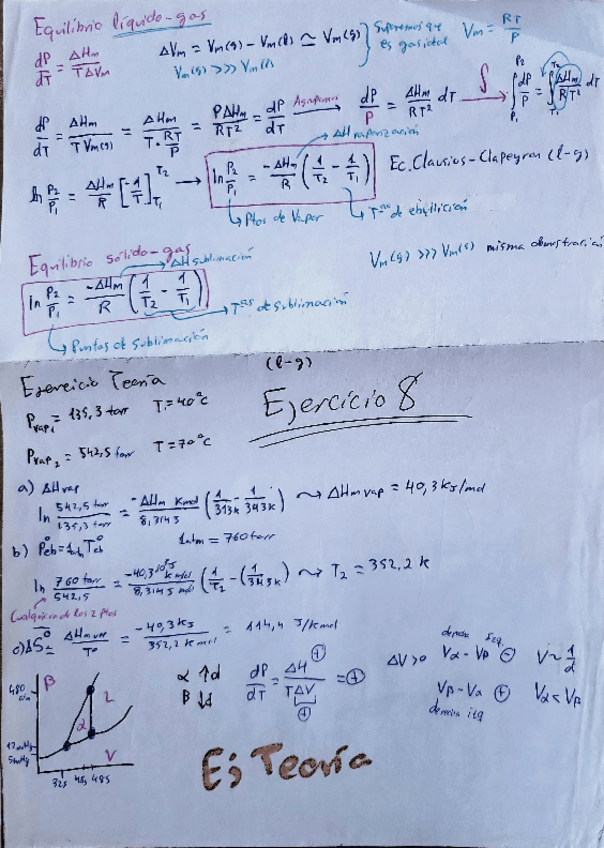 Equilibrio líquido-gas
dP/dT = ΔHm/TΔVm   ΔVm = Vm(g) - Vm(l) ≃ Vm(g) } Suponemos que es gas ideal   Vm = RT/P
Vm(g) >>> Vm(l)
dP/dT = ΔHm/T Vm(g) = ΔHm/T·RT/P = PΔHm/RT² = dP/dT   Agrupamos →   dP/P = ΔHm/RT² dT   ∫ →   ∫_P1^P2 dP/P = ∫_T1^T2 ΔHm/RT² dT
ΔHvaporización
ln P2/P1 = ΔHm/R [-1/T]_T1^T2 → ln P2/P1 = -ΔHm/R (1/T2 - 1/T1)   Ec. Clausius-Clapeyron (l-g)
Ptos de Vapor   Tªˢ de ebullición
Equilibrio sólido-gas
ΔHsublimación   Vm(g) >>> Vm(s) misma demostración
ln P2/P1 = -ΔHm/R (1/T2 - 1/T1)   Tªˢ de sublimación
Puntos de sublimación
Ejercicio Teoría   (l-g)
Pvap1 = 135,3 torr   T = 40°C   Ejercicio 8
Pvap2 = 542,5 torr   T = 70°C
a) ΔHvap
ln 542,5 torr/135,3 torr = -ΔHm Kmol/8,314 J (1/313K - 1/343K) ⇝ ΔHm vap = 40,3 kJ/mol
b) P°eb = 1 atm T°eb   1atm = 760 torr
ln 760 torr/542,5 = -40,3·10³ J Kmol/8,314 J mol (1/T2 - (1/343K) ⇝ T2 = 352,2 K
Cualquiera de los 2 ptos
c) ΔS° = ΔHm vap/T° = -40,3 kJ/352,2 K mol = 114,4 J/Kmol
α ↑d   dP/dT = ΔH ⊕/TΔV ⊕ = ⊕   ΔV>0   Vα - Vβ ⊖   V~1/d
β ↓d   Vβ - Vα ⊕   Vα < Vβ
β   2   α   V
480
12   5
325   485
Ej Teoría